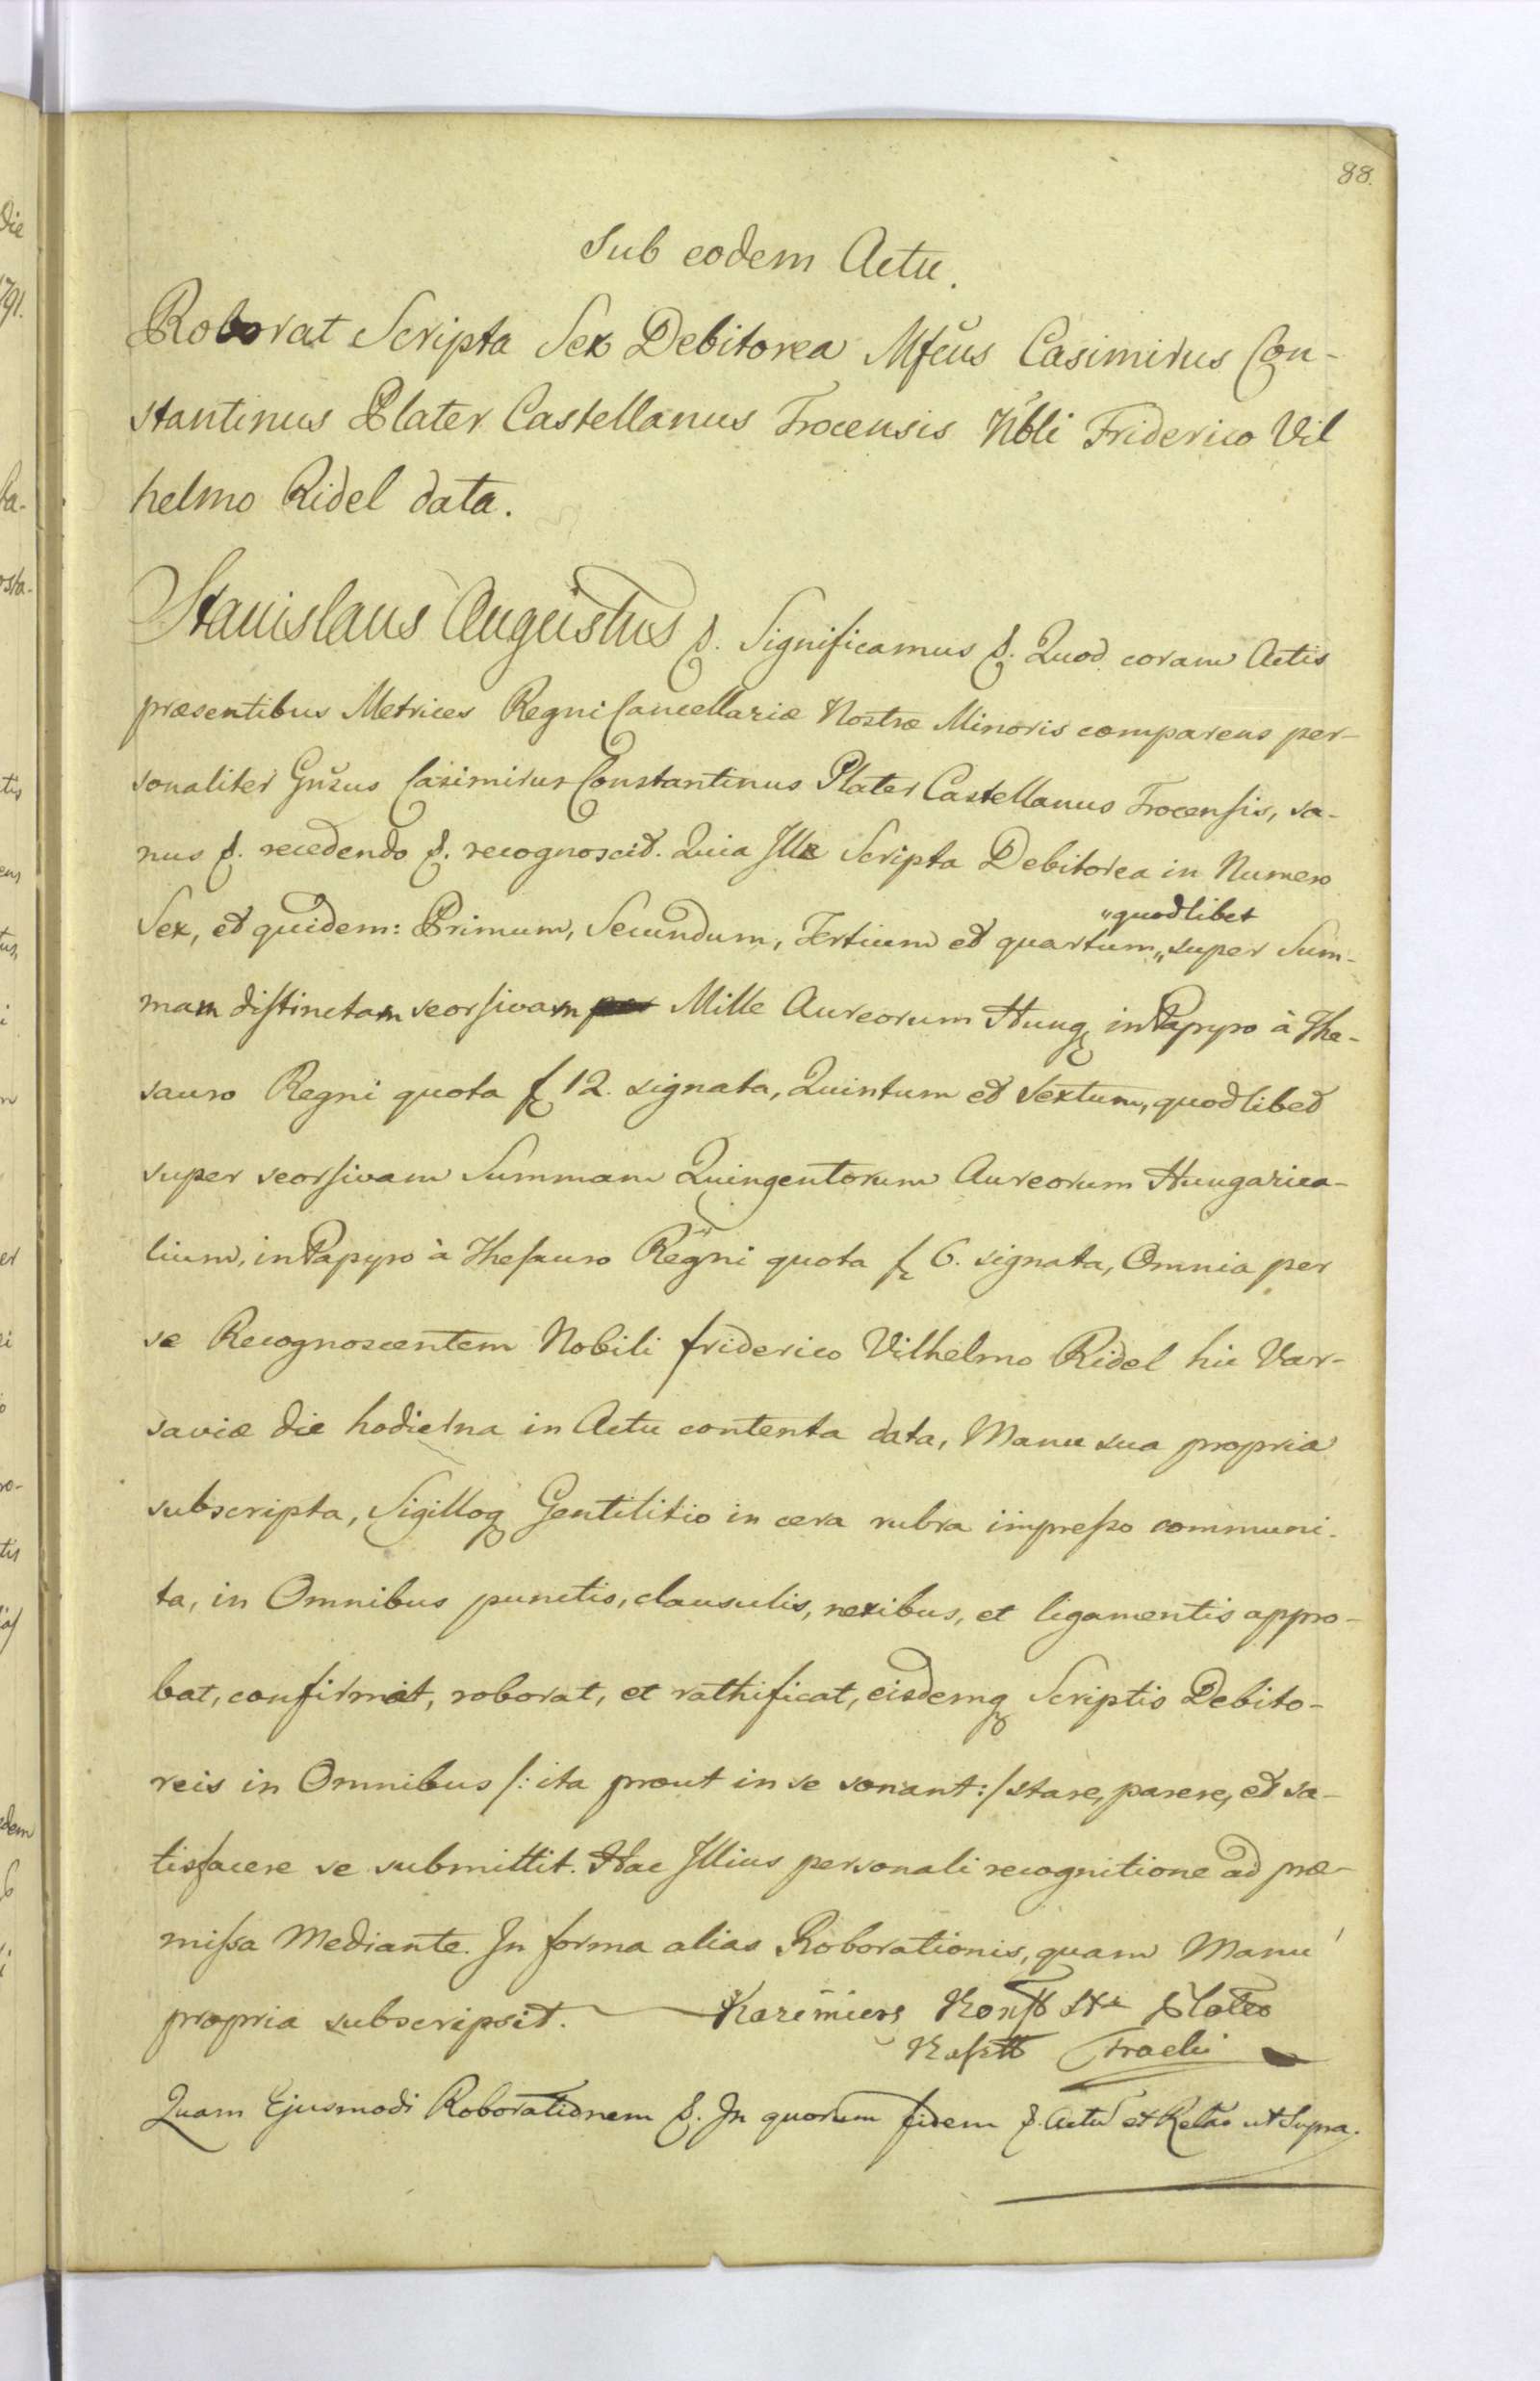 88.
Sub eodem Actu.
Roborat Scripta Sex Debitorea Mfcus Casimirus Con-
stantinus Plater Castellanus Trocensis Nbli Friderico Vil
helmo Ridel data.
Stanislaus Augustus &. Significamus &. Quod coram Actis
præsentibus Metrices Regni Cancellariæ Nostræ Minoris comparens per-
sonaliter Gnsus Casimirus Constantinus Plater Castellanus Trocensis, sa-
nus &. recedendo &. recognoscit. Quia Illa Scripta Debitorea in Numero
Sex, et quidem: Primum, Secundum, Tertium et quartum „quodlibet super Sum-
mam distinctam seorsivam Mille Aureorum Hung in Papyro à The-
sauro Regni quota f 12. signata, Quintum et Sextum, quodlibet
super seorsivam Summam Quingentorum Aureorum Hungarica-
lium, in Papyro à Thesauro Regni quota f 6. signata, Omnia per
se Recognoscentem Nobili friderico Vilhelmo Ridel hic Var-
saviæ die hodierna in Actu contenta data, Manu sua propria
subscripta, Sigilloq Gentilitio in cera rubra impresso communi-
ta, in Omnibus punctis, clausulis, nexibus, et ligamentis appro-
bat, confirmat, roborat, et rathificat, eisdemq Scriptis Debito-
reis in Omnibus /: ita prout in se sonant :/ stare, parere, et sa-
tisfacere se submittit. Hac Illius personali recognitione ad præ-
missa Mediante. In forma alias Roborationis, quam Manu
propria subscripsit. Kazimierz Konst Plater
Kasztt Trocki
Quam Ejusmodi Roborationem &. In quorum fidem &. Actu et Relao ut Supra.